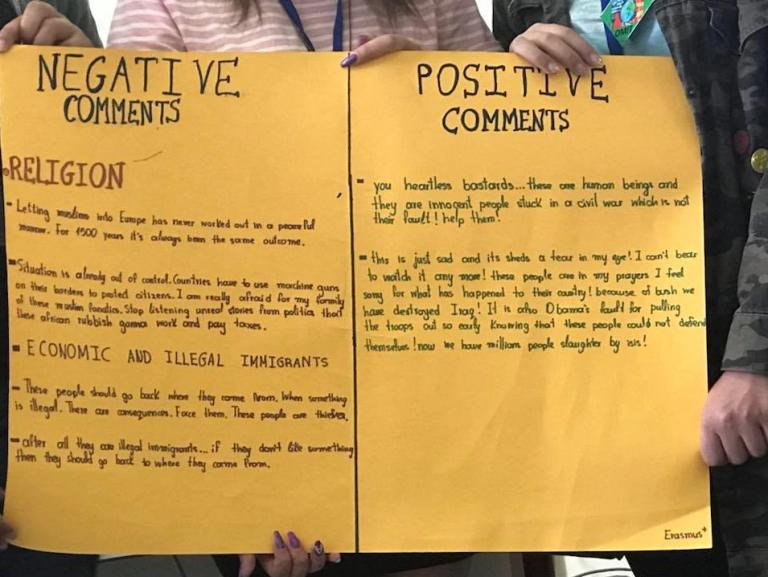 NEGATIVE
COMMENTS
RELIGION
- Letting muslims into Europe has never worked out in a peaceful
manner. For 1500 years it's always been the same outcome.
- Situation is already out of control. Countries have to use machine guns
on their borders to protect citizens. I am really afraid for my family
of these muslim fanatics. Stop listening unreal stories from politics that
these african rubbish gonna work and pay taxes.
- ECONOMIC AND ILLEGAL IMMIGRANTS
- These people should go back where they came from. When something
is illegal. There are consequences. Face them. These people are thieves.
- after all they are illegal immigrants... if they don't like something
then they should go back to where they came from.
POSITIVE
COMMENTS
- you heartless bastards... these are human beings and
they are innocent people stuck in a civil war which is not
their fault! help them!
- this is just sad and its sheds a tear in my eye! I can't bear
to watch it any more! these people are in my prayers I feel
sorry for what has happened to their country! because of bush we
have destroyed Iraq! It is also Obama's fault for pulling
the troops out so early knowing that these people could not defend
themselves! now we have millions people slaughter by isis!
Erasmus+